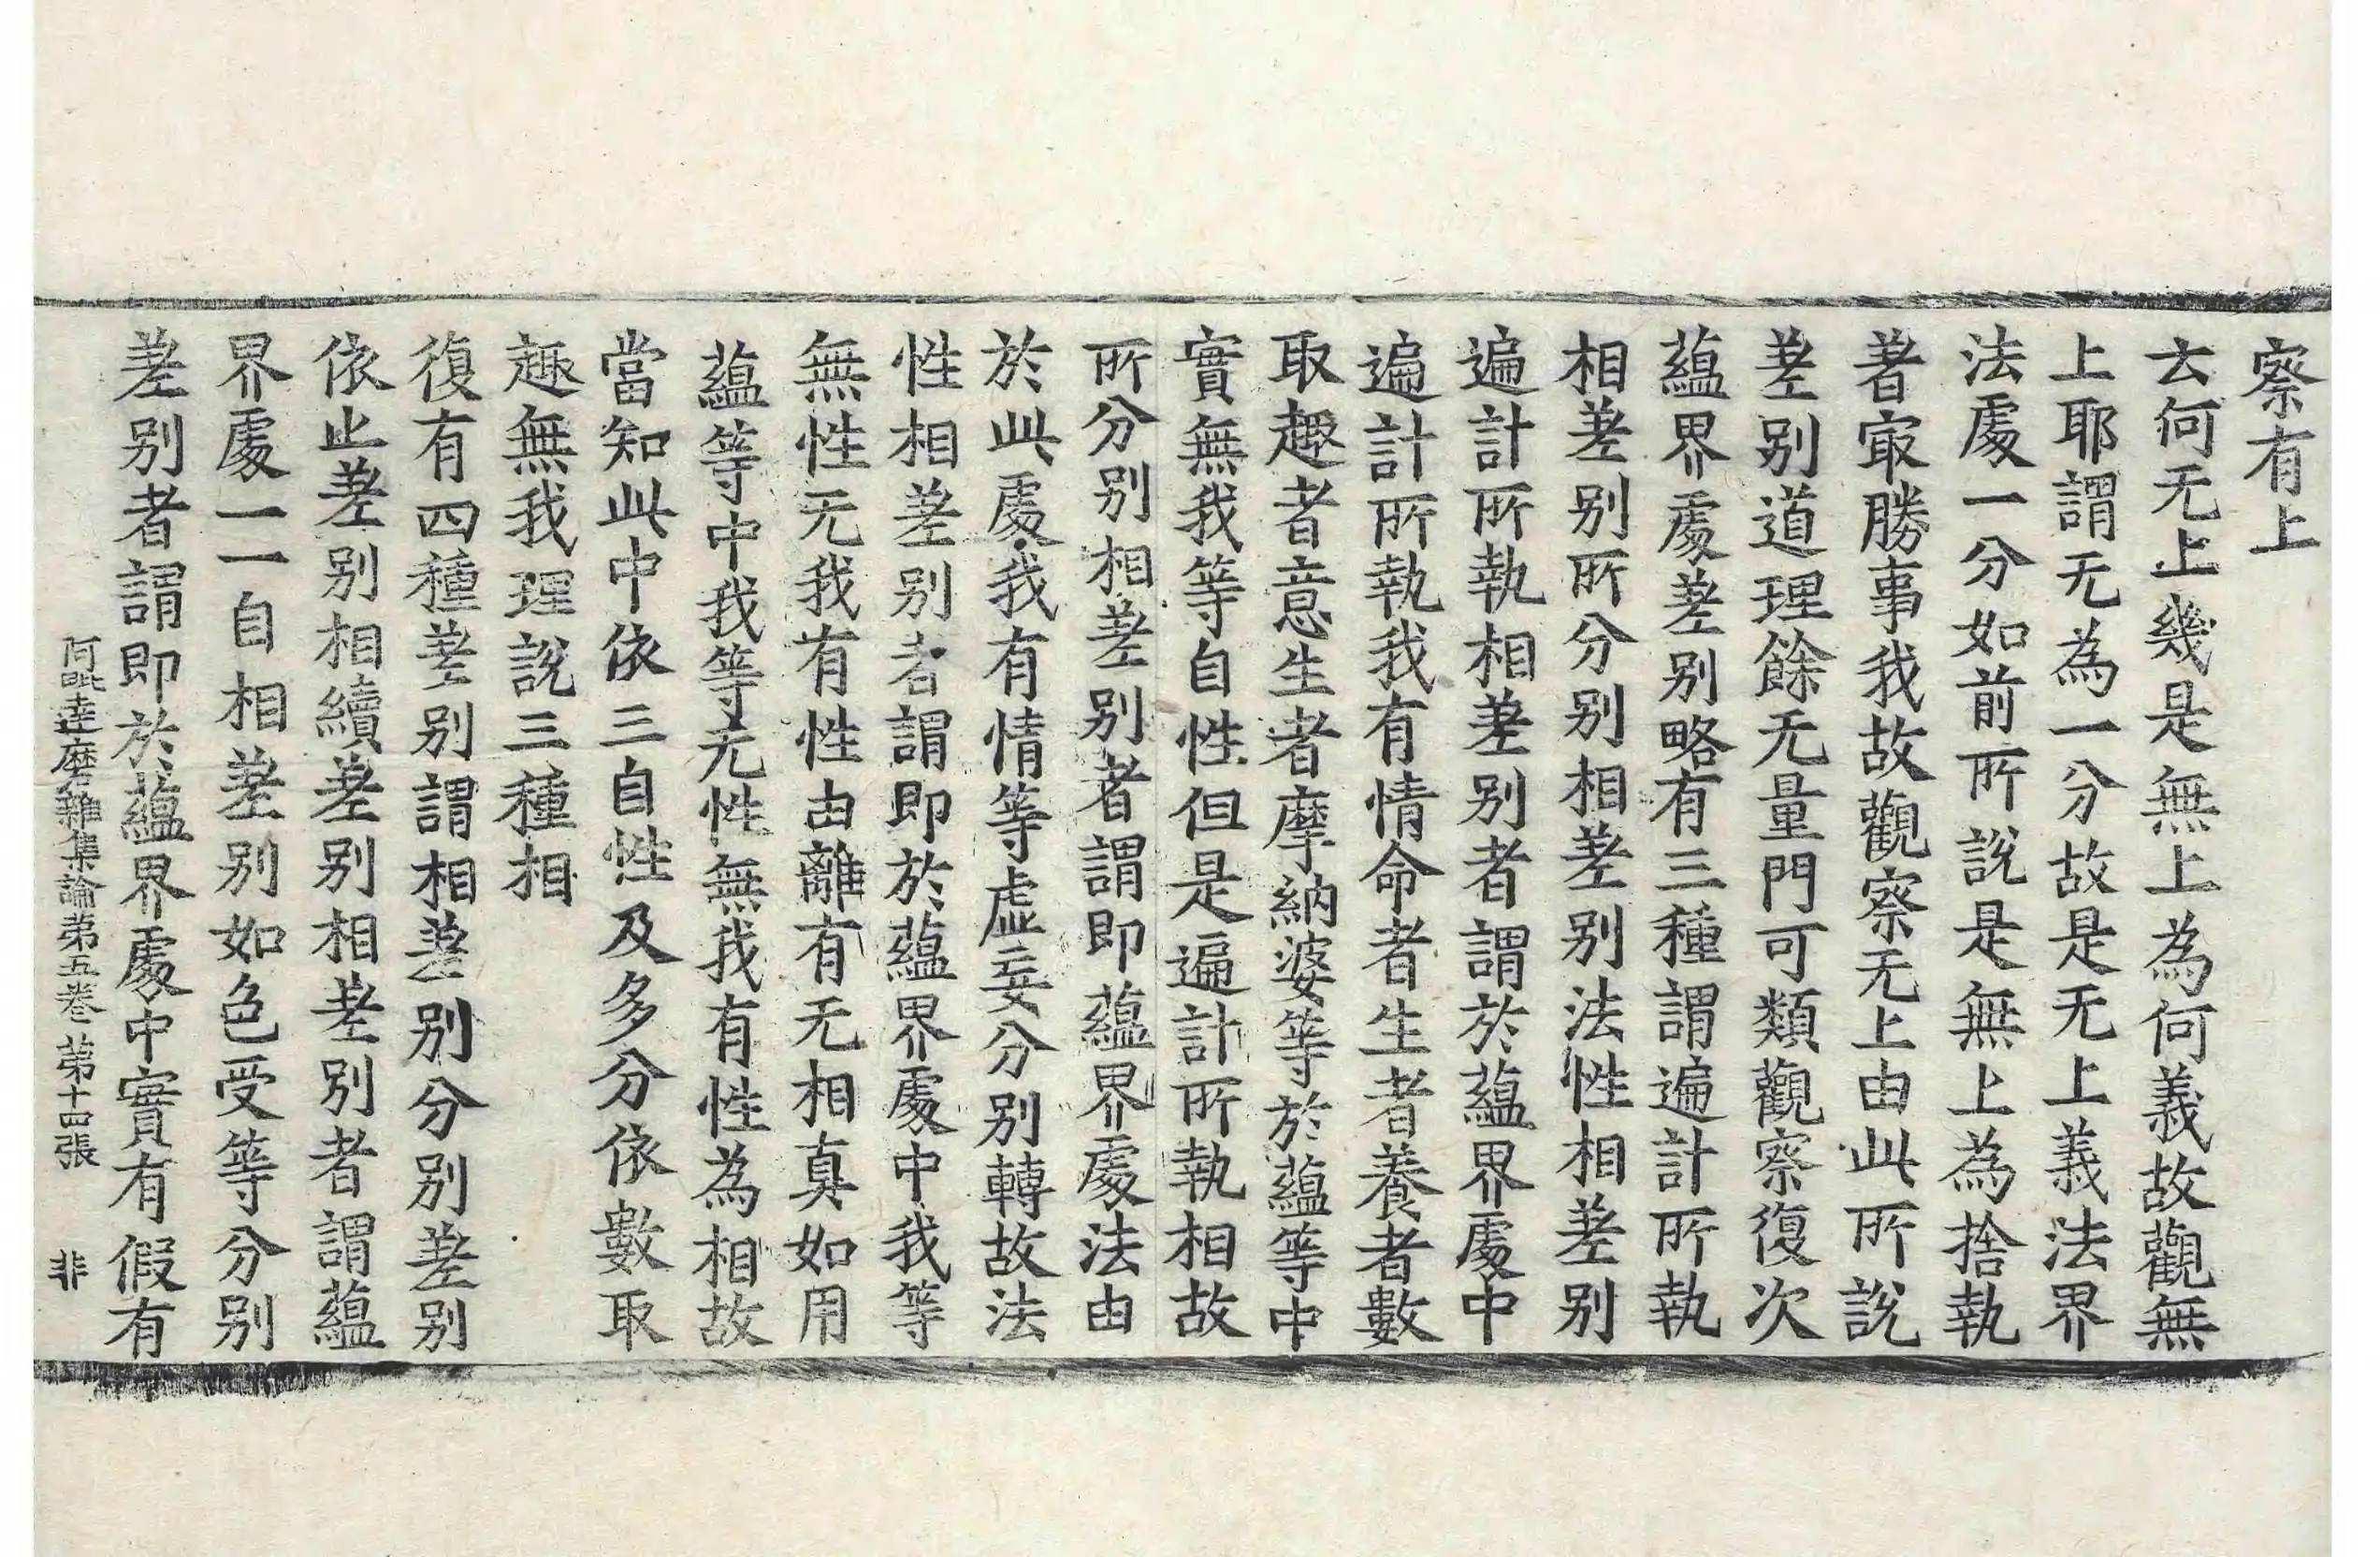 察有上
云何无上幾是無上為何義故觀無
上耶謂无為一分故是无上義法界
法處一分如前所說是無上為捨執
著㝡勝事我故觀察无上由此所說
差别道理餘无量門可類觀察復次
蘊界處差别略有三種謂遍計所執
相差别所分别相差别法性相差别
遍計所執相差别者謂於蘊界處中
遍計所執我有情命者生者養者數
取趣者意生者摩納婆等於蘊等中
實無我等自性但是遍計所執相故
所分别相差别者謂即蘊界處法由
於此處我有情等虛妄分别轉故法
性相差别者謂即於蘊界處中我等
無性无我有性由離有无相真如用
蘊等中我等无性無我有性為相故
當知此中依三自性及多分依數取
趣無我理說三種相
復有四種差别謂相差别分别差别
依止差别相續差别相差别者謂蘊
界處一一自相差别如色受等分别
差别者謂即於蘊界處中實有假有
阿毗達磨雜集論第五卷 第十四張 非